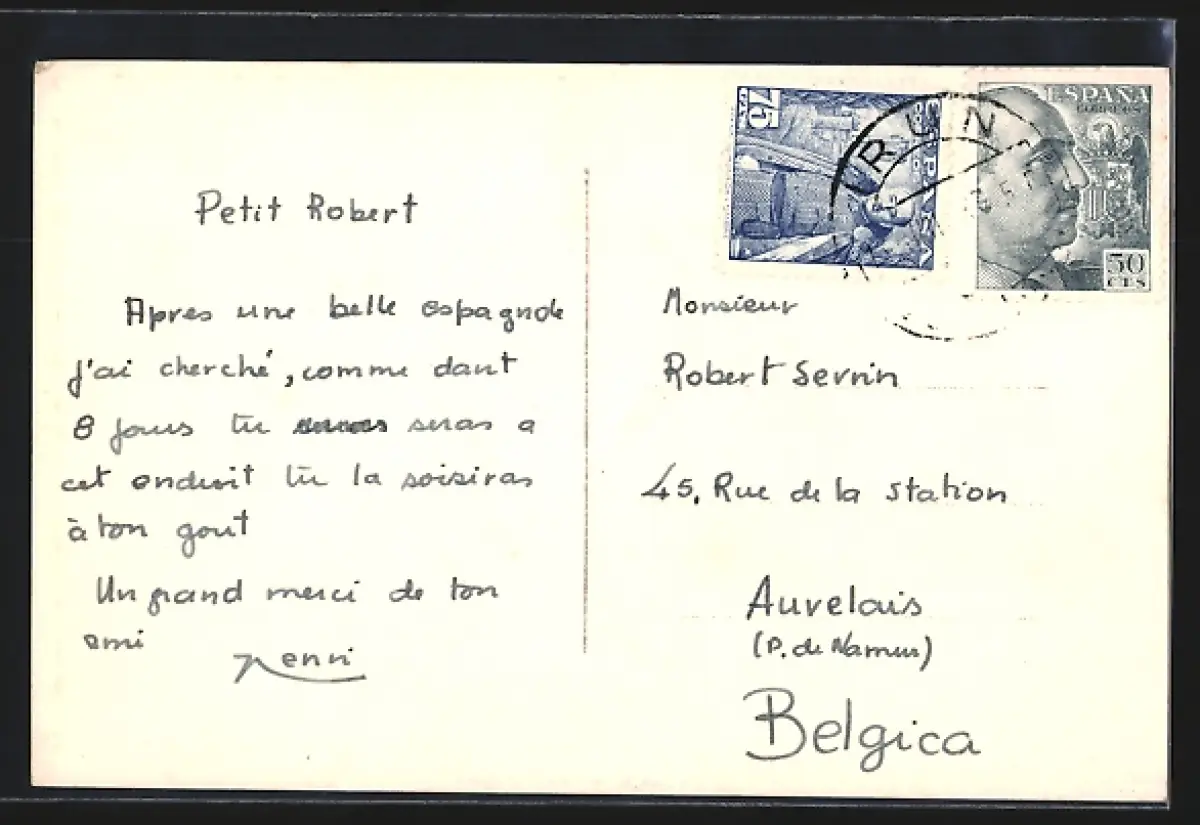 Petit Robert
Apres une belle espagnole
J'ai cherché, comme dant
8 jours tu seras a
cet enduoit tu la soisiras
à ton gout
Un grand merci de ton
ami
Henri
75
IRUN
ESPAÑA
CORREOS
50
CTS
Monsieur
Robert Sevrin
45, Rue de la station
Auvelais
(P. de Namur)
Belgica